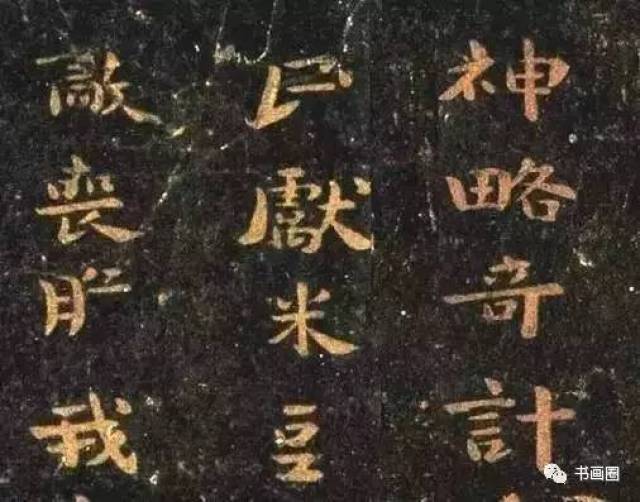 神略奇計
民獻米豆
敵喪膽我
书画圈